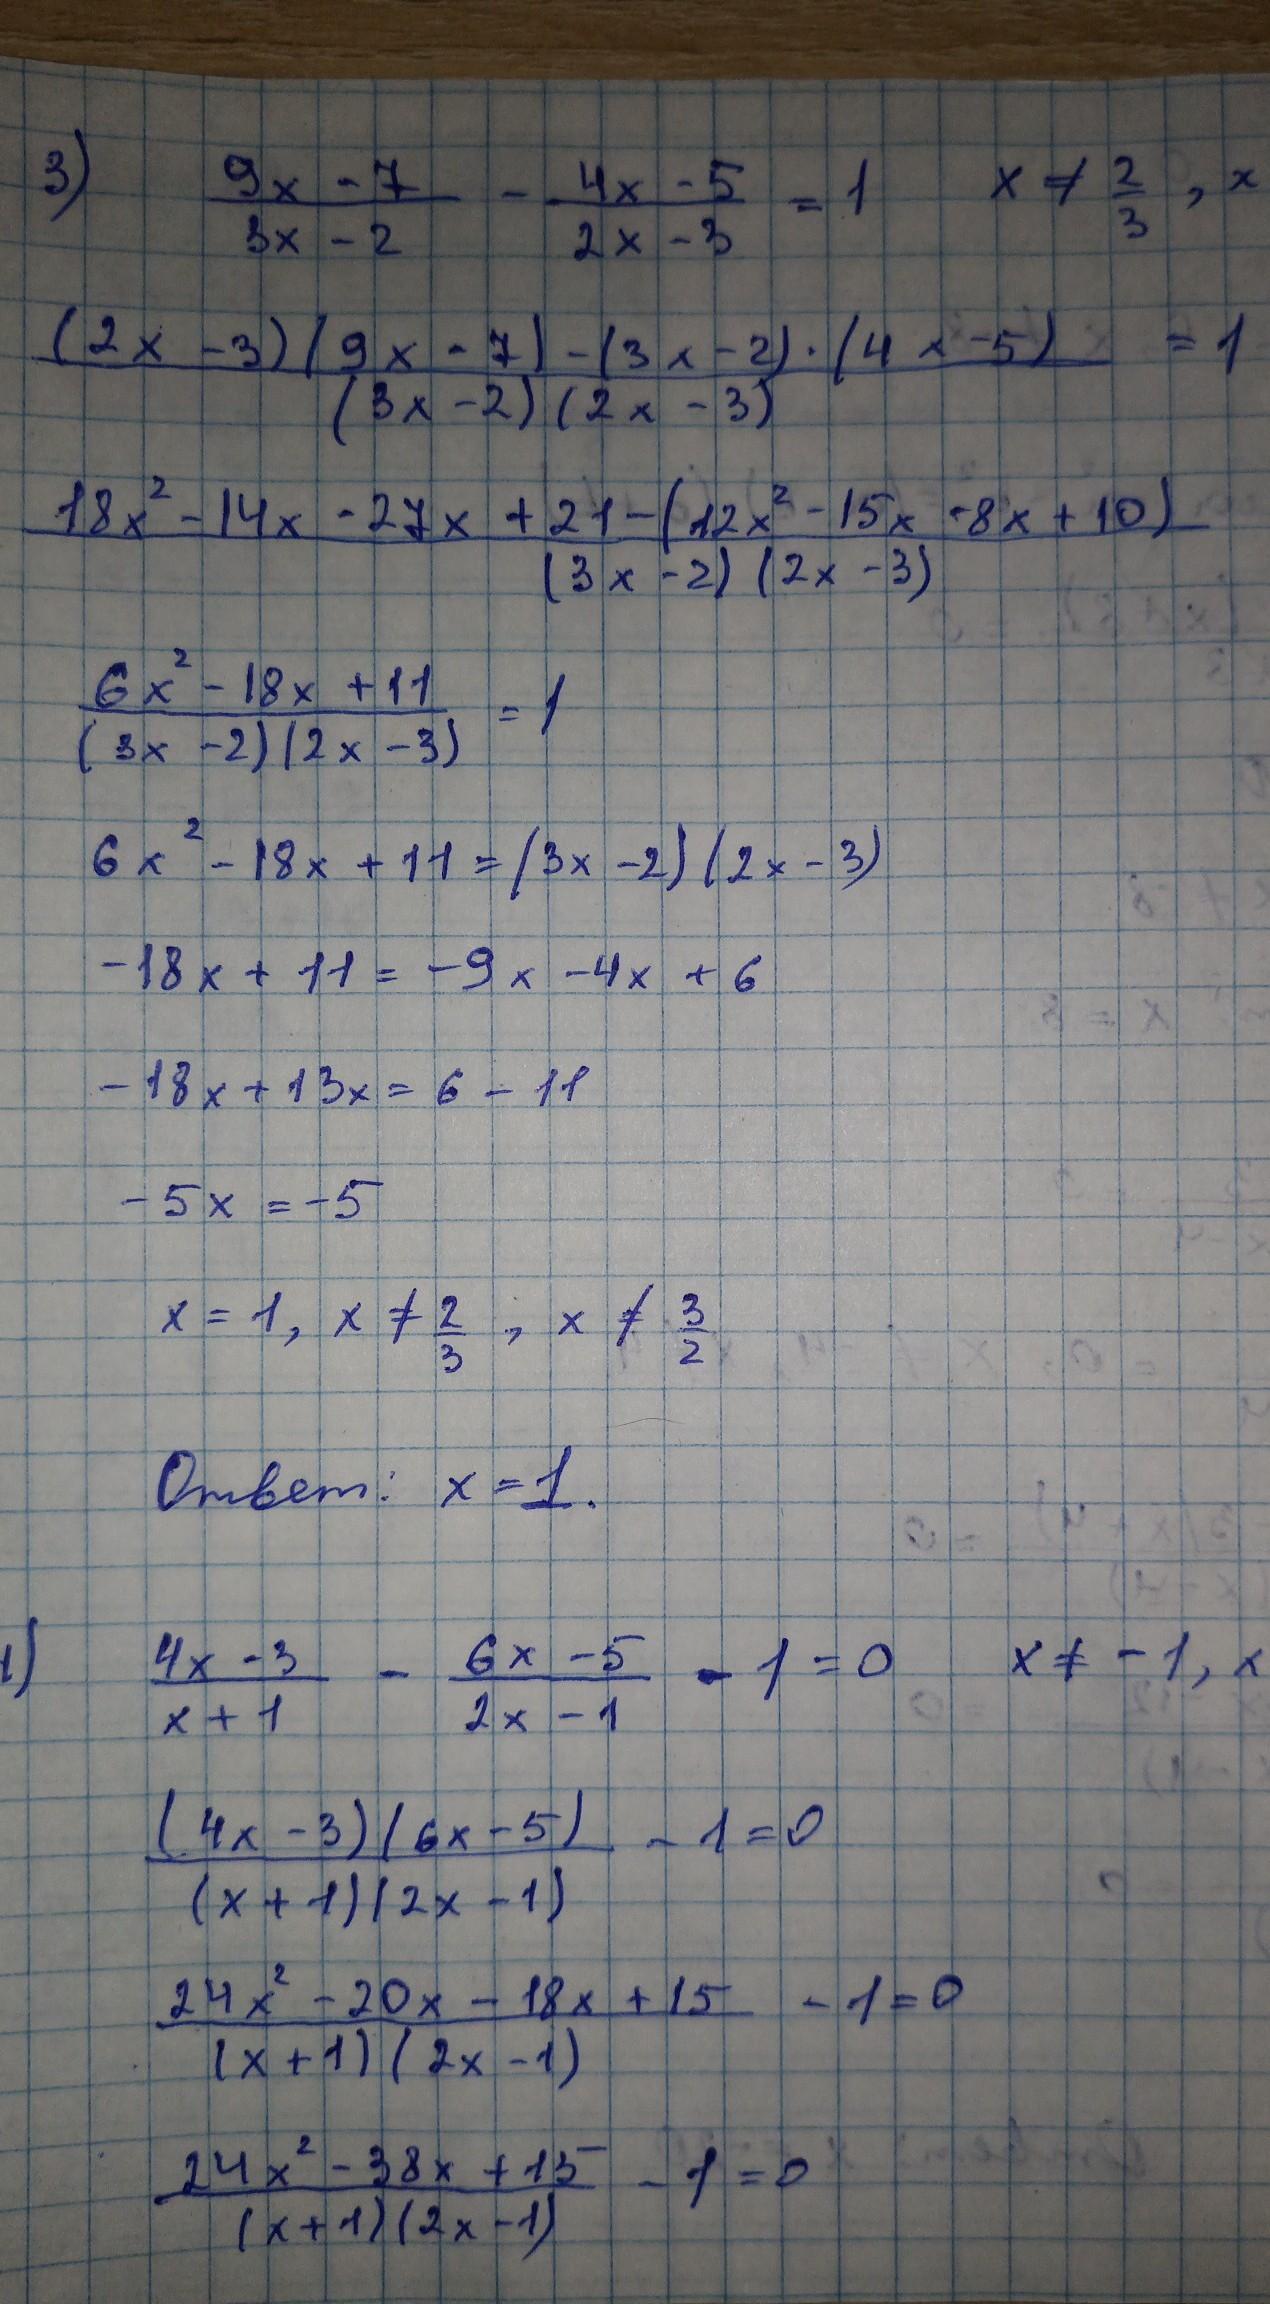 3) (9x - 7)/(3x - 2) - (4x - 5)/(2x - 3) = 1 x ≠ 2/3 , x
((2x - 3)(9x - 7) - (3x - 2) · (4x - 5))/((3x - 2)(2x - 3)) = 1
(18x² - 14x - 27x + 21 - (12x² - 15x - 8x + 10))/((3x - 2)(2x - 3))
(6x² - 18x + 11)/((3x - 2)(2x - 3)) = 1
6x² - 18x + 11 = (3x - 2)(2x - 3)
-18x + 11 = -9x - 4x + 6
-18x + 13x = 6 - 11
-5x = -5
x = 1, x ≠ 2/3 , x ≠ 3/2
Ответ: x = 1.
(4x - 3)/(x + 1) - (6x - 5)/(2x - 1) - 1 = 0 x ≠ -1, x
((4x - 3)(6x - 5))/((x + 1)(2x - 1)) - 1 = 0
(24x² - 20x - 18x + 15)/((x + 1)(2x - 1)) - 1 = 0
(24x² - 38x + 15)/((x + 1)(2x - 1)) - 1 = 0